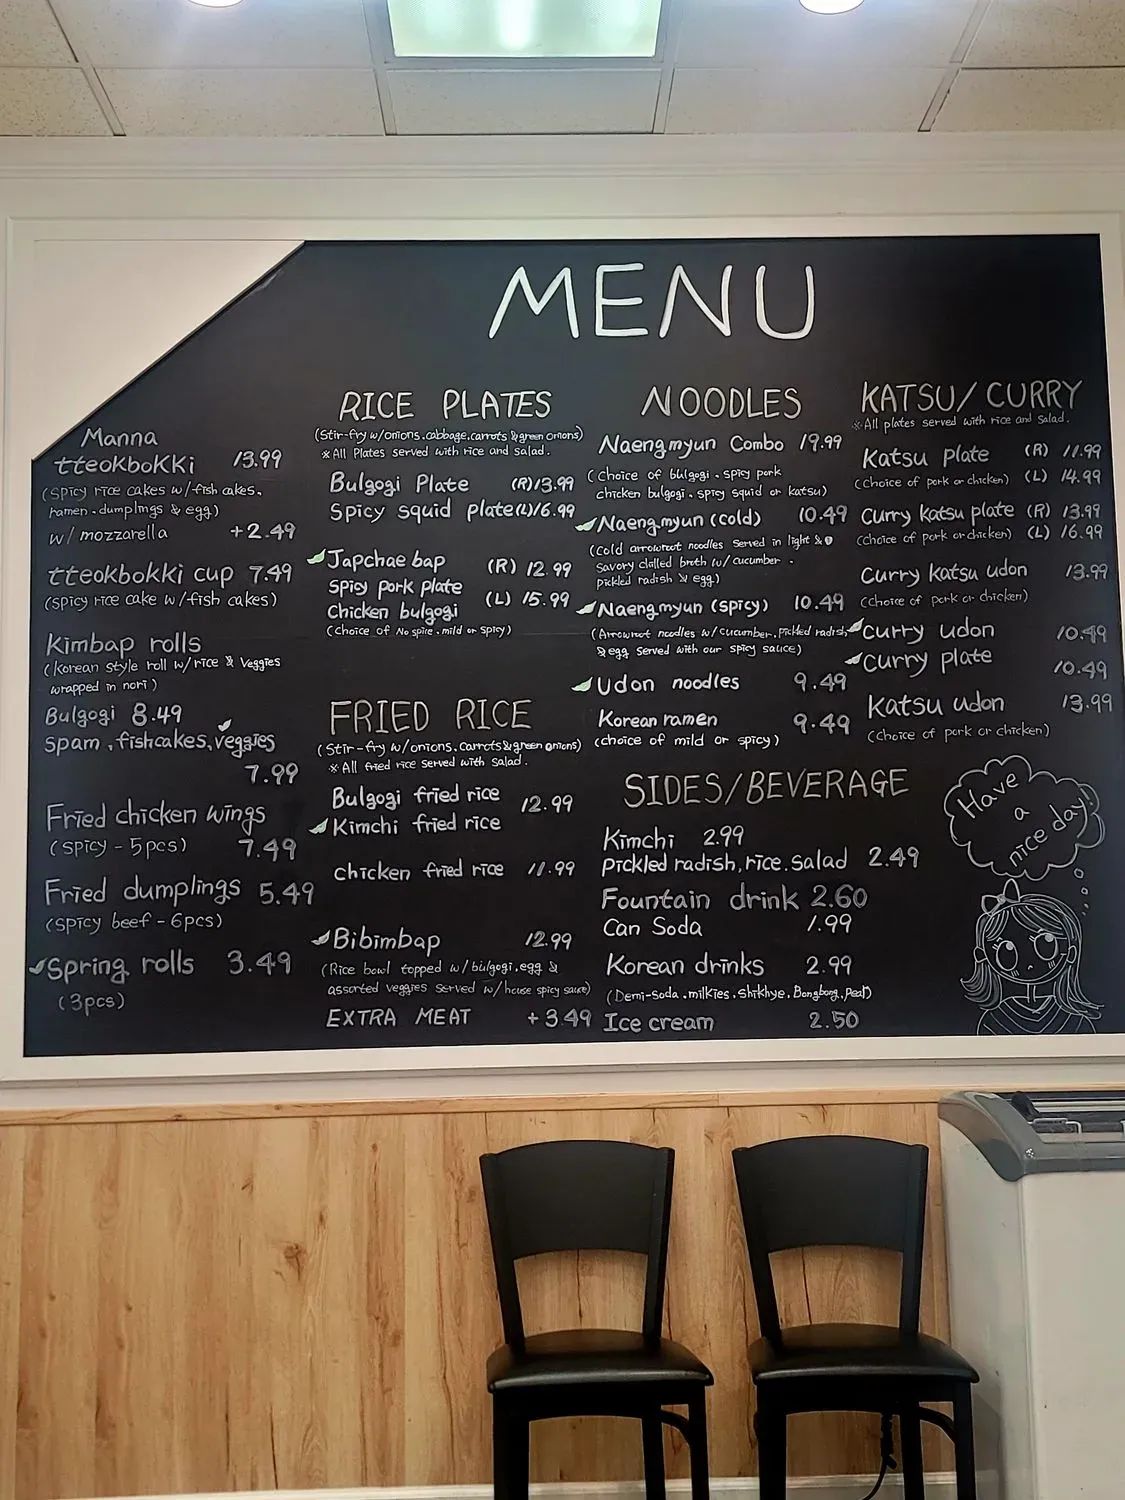 MENU
Manna
tteokbokki 13.99
(spicy rice cakes w/fish cakes.
ramen.dumplings & egg)
w/ mozzarella +2.49
tteokbokki cup 7.49
(spicy rice cake w/fish cakes)
Kimbap rolls
(korean style roll w/rice & veggies
wrapped in nori)
Bulgogi 8.49
spam.fishcakes.veggies
7.99
Fried chicken wings
(spicy - 5pcs) 7.49
Fried dumplings 5.49
(spicy beef - 6pcs)
Spring rolls 3.49
(3pcs)
RICE PLATES
(Stir-fry w/onions.cabbage.carrots & green onions)
※All Plates served with rice and salad.
Bulgogi Plate (R)13.99
Spicy squid plate(L)16.99
Japchae bap (R) 12.99
Spicy pork plate
Chicken bulgogi (L) 15.99
(choice of No spice.mild or spicy)
FRIED RICE
(Stir-fry w/onions.carrots&green onions)
※All fried rice served with salad.
Bulgogi fried rice 12.99
Kimchi fried rice
chicken fried rice 11.99
Bibimbap 12.99
(Rice bowl topped w/bulgogi.egg &
assorted veggies served w/house spicy sauce)
EXTRA MEAT +3.49
NOODLES
Naengmyun Combo 19.99
(Choice of bulgogi.spicy pork
chicken bulgogi.spicy squid or katsu)
Naengmyun (cold) 10.49
(Cold arrowroot noodles served in light &
savory chilled broth w/cucumber.
pickled radish & egg)
Naengmyun (spicy) 10.49
(Arrowroot noodles w/cucumber.pickled radish
& egg served with our spicy sauce)
Udon noodles 9.49
Korean ramen 9.49
(choice of mild or spicy)
SIDES/BEVERAGE
Kimchi 2.99
pickled radish,rice.salad 2.49
Fountain drink 2.60
Can Soda 1.99
Korean drinks 2.99
(Demi-soda.milkies.Shikhye.Bongbong.Pear)
Ice cream 2.50
KATSU/CURRY
※All plates served with rice and salad.
Katsu plate (R) 11.99
(Choice of pork or chicken) (L) 14.99
Curry katsu plate (R) 13.99
(Choice of pork or chicken) (L) 16.99
Curry katsu udon 13.99
(Choice of pork or chicken)
Curry udon 10.49
Curry plate 10.49
Katsu udon 13.99
(Choice of pork or chicken)
Have
a
nice day!